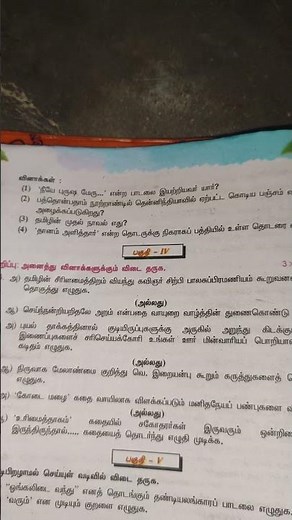 வினாக்கள் :
(1) 'நீயே பருஷ மேரு...' என்ற பாடலை இயற்றியவர் யார்?
(2) பத்தொன்பதாம் நூற்றாண்டில் தென்னிந்தியாவில் ஏற்பட்ட கொடிய பஞ்சம்
அழைக்கப்படுகிறது?
(3) தமிழின் முதல் நாவல் எது?
(4) 'தானம் அளித்தார்' என்ற தொடருக்கு நிகராகப் பத்தியில் உள்ள தொடரை
பகுதி - IV
றிப்பு: அனைத்து வினாக்களுக்கும் விடை தருக.
அ) தமிழின் சீரிளமைத்திறம் வியந்து கவிஞர் சிற்பி பாலசுப்பிரமணியம் கூறுவன
தொகுத்து எழுதுக.
(அல்லது)
ஆ) செய்நன்றியறிதலே அறம் என்பதை வாயுறை வாழ்த்தின் துணைகொண்டு
அ) புயல் தாக்கத்தினால் குடியிருப்புகளுக்கு அருகில் அறுந்து கிடக்கு
இணைப்புகளைச் சரிசெய்யக்கோரி உங்கள் ஊர் மின்வாரியப் பொறியா
கடிதம் எழுதுக.
(அல்லது)
ஆ) நிருவாக மேலாண்மை குறித்து வெ. இறையன்பு கூறும் கருத்துகளைத்
எழுதுக.
அ) 'கோடை மழை' கதை வாயிலாக விளக்கப்படும் மனிதநேயப் பண்புகளை
(அல்லது)
'உரிமைத்தாகம்' கதையில் சகோதரர்கள் இருவரும் ஒன்றி
இருந்திருந்தால்..... கதையைத் தொடர்ந்து எழுதி முடிக்க.
பகுதி - V
டிபிறழாமல் செய்யுள் வடிவில் விடை தருக.
"ஓங்கலிடை வந்து" எனத் தொடங்கும் தண்டியலங்காரப் பாடலை எழுதுக.
'வரும்' என முடியும் குறளை எழுதுக.